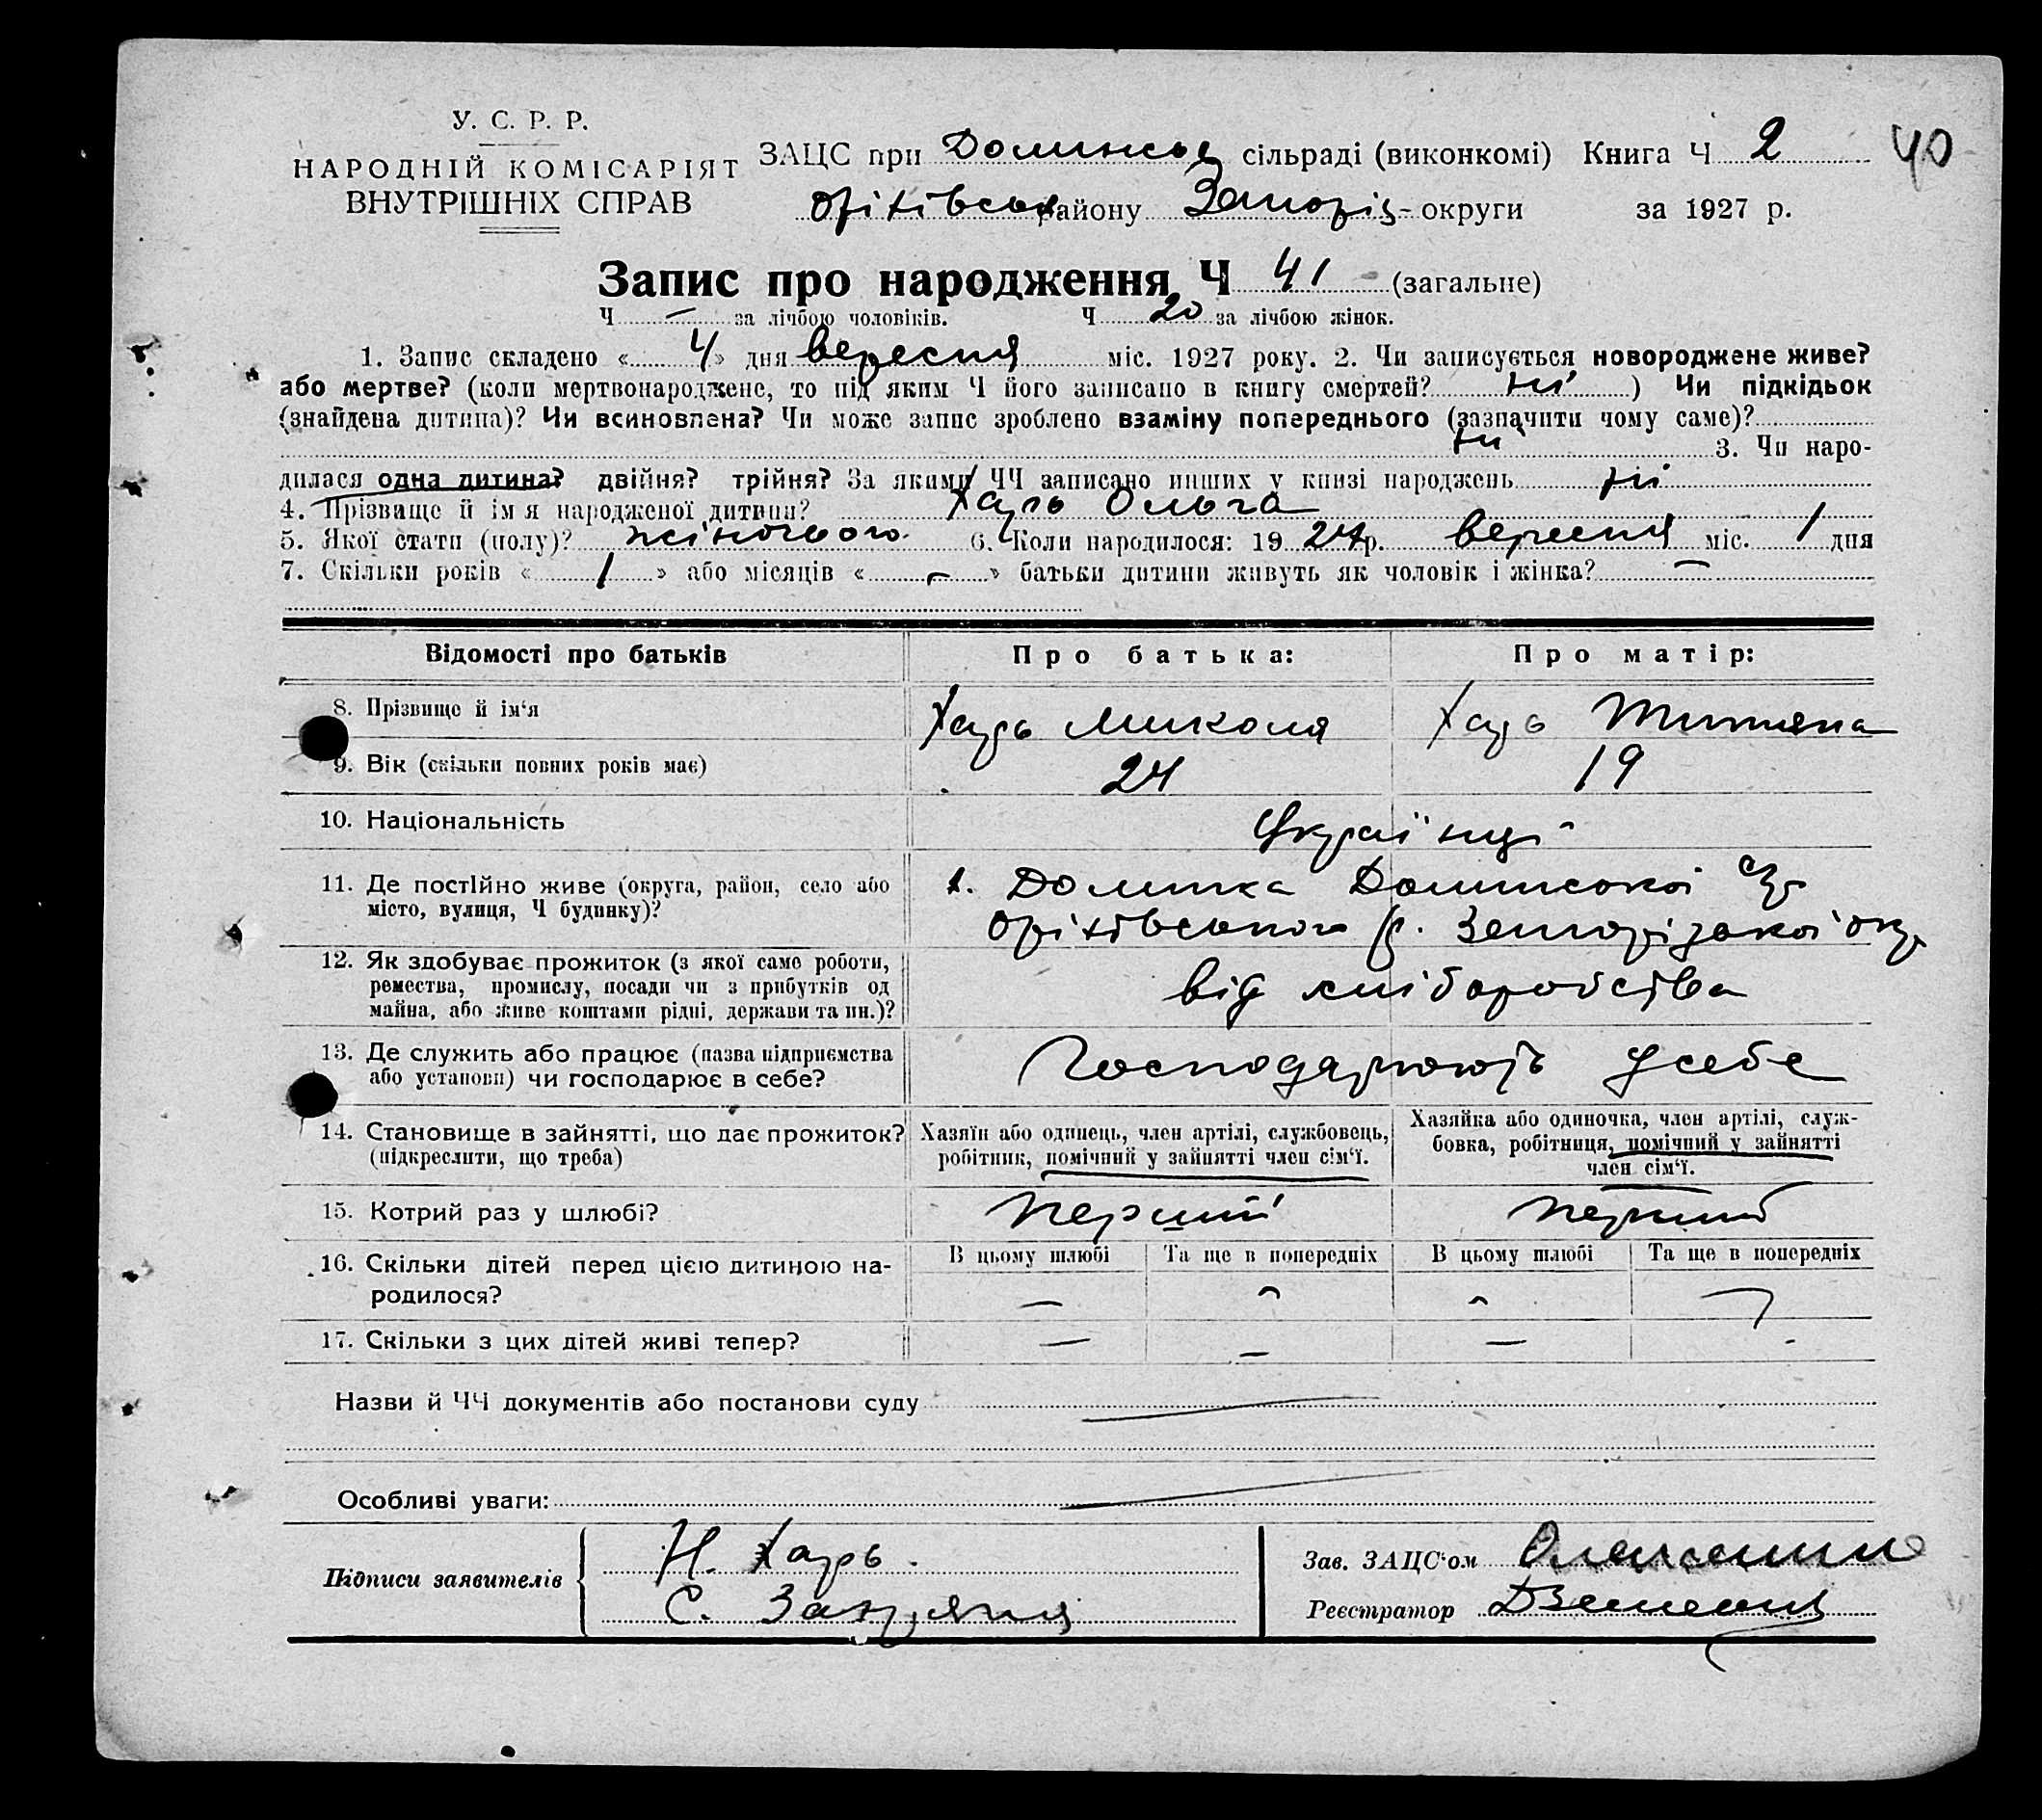 У. С. Р. Р.
НАРОДНІЙ КОМІСАРІЯТ
ВНУТРІШНІХ СПРАВ
ЗАЦС при Долинськ сільраді (виконкомі) Книга Ч 2 40
Оріхівськ району Запоріз- округи за 1927 р.
Запис про народження Ч 41 (загальне)
Ч — за лічбою чоловіків. Ч 20 за лічбою жінок.
1. Запис складено « 4 » дня вересня міс. 1927 року. 2. Чи записується новороджене живе?
або мертве? (коли мертвонароджене, то під яким Ч його записано в книгу смертей? ні ) Чи підкідьок
(знайдена дитина)? Чи всиновлена? Чи може запис зроблено взаміну попереднього (зазначити чому саме)?
ні 3. Чи наро-
дилася одна дитина? двійня? трійня? За якими ЧЧ записано инших у книзі народжень ні
4. Прізвище й імя народженої дитини? Харь Ольга
5. Якої стати (полу)? жіночого 6. Коли народилося: 1927 р. вересня міс. 1 дня
7. Скільки років « 1 » або місяців « — » батьки дитини живуть як чоловік і жінка? —
Відомості про батьків Про батька: Про матір:
8. Прізвище й ім‘я Харь Микола Харь Титяна
9. Вік (скільки повних років має) 24 19
10. Національність Українці
11. Де постійно живе (округа, район, село або
місто, вулиця, Ч будинку)?
Долинка Долинської с/р
Оріхівського р. Запорізької окр
12. Як здобуває прожиток (з якої саме роботи,
ремества, промислу, посади чи з прибутків од
майна, або живе коштами рідні, держави та ин.)?
від хліборобства
13. Де служить або працює (назва підприємства
або установи) чи господарює в себе?
Господарюють у себе
14. Становище в зайнятті, що дає прожиток?
(підкреслити, що треба)
Хазяїн або одинець, член артілі, службовець,
робітник, помічний у зайнятті член сім‘ї.
Хазяйка або одиночка, член артілі, служ-
бовка, робітниця, помічний у зайнятті
член сім‘ї.
15. Котрий раз у шлюбі? перший перший
16. Скільки дітей перед цією дитиною на-
родилося?
В цьому шлюбі Та ще в попередніх В цьому шлюбі Та ще в попередніх
— — — —
17. Скільки з цих дітей живі тепер? — — — -
Назви й ЧЧ документів або постанови суду —
Особливі уваги: —
Підписи заявителів
Н. Харь.
С.
Зав. ЗАЦС‘ом
Реєстратор